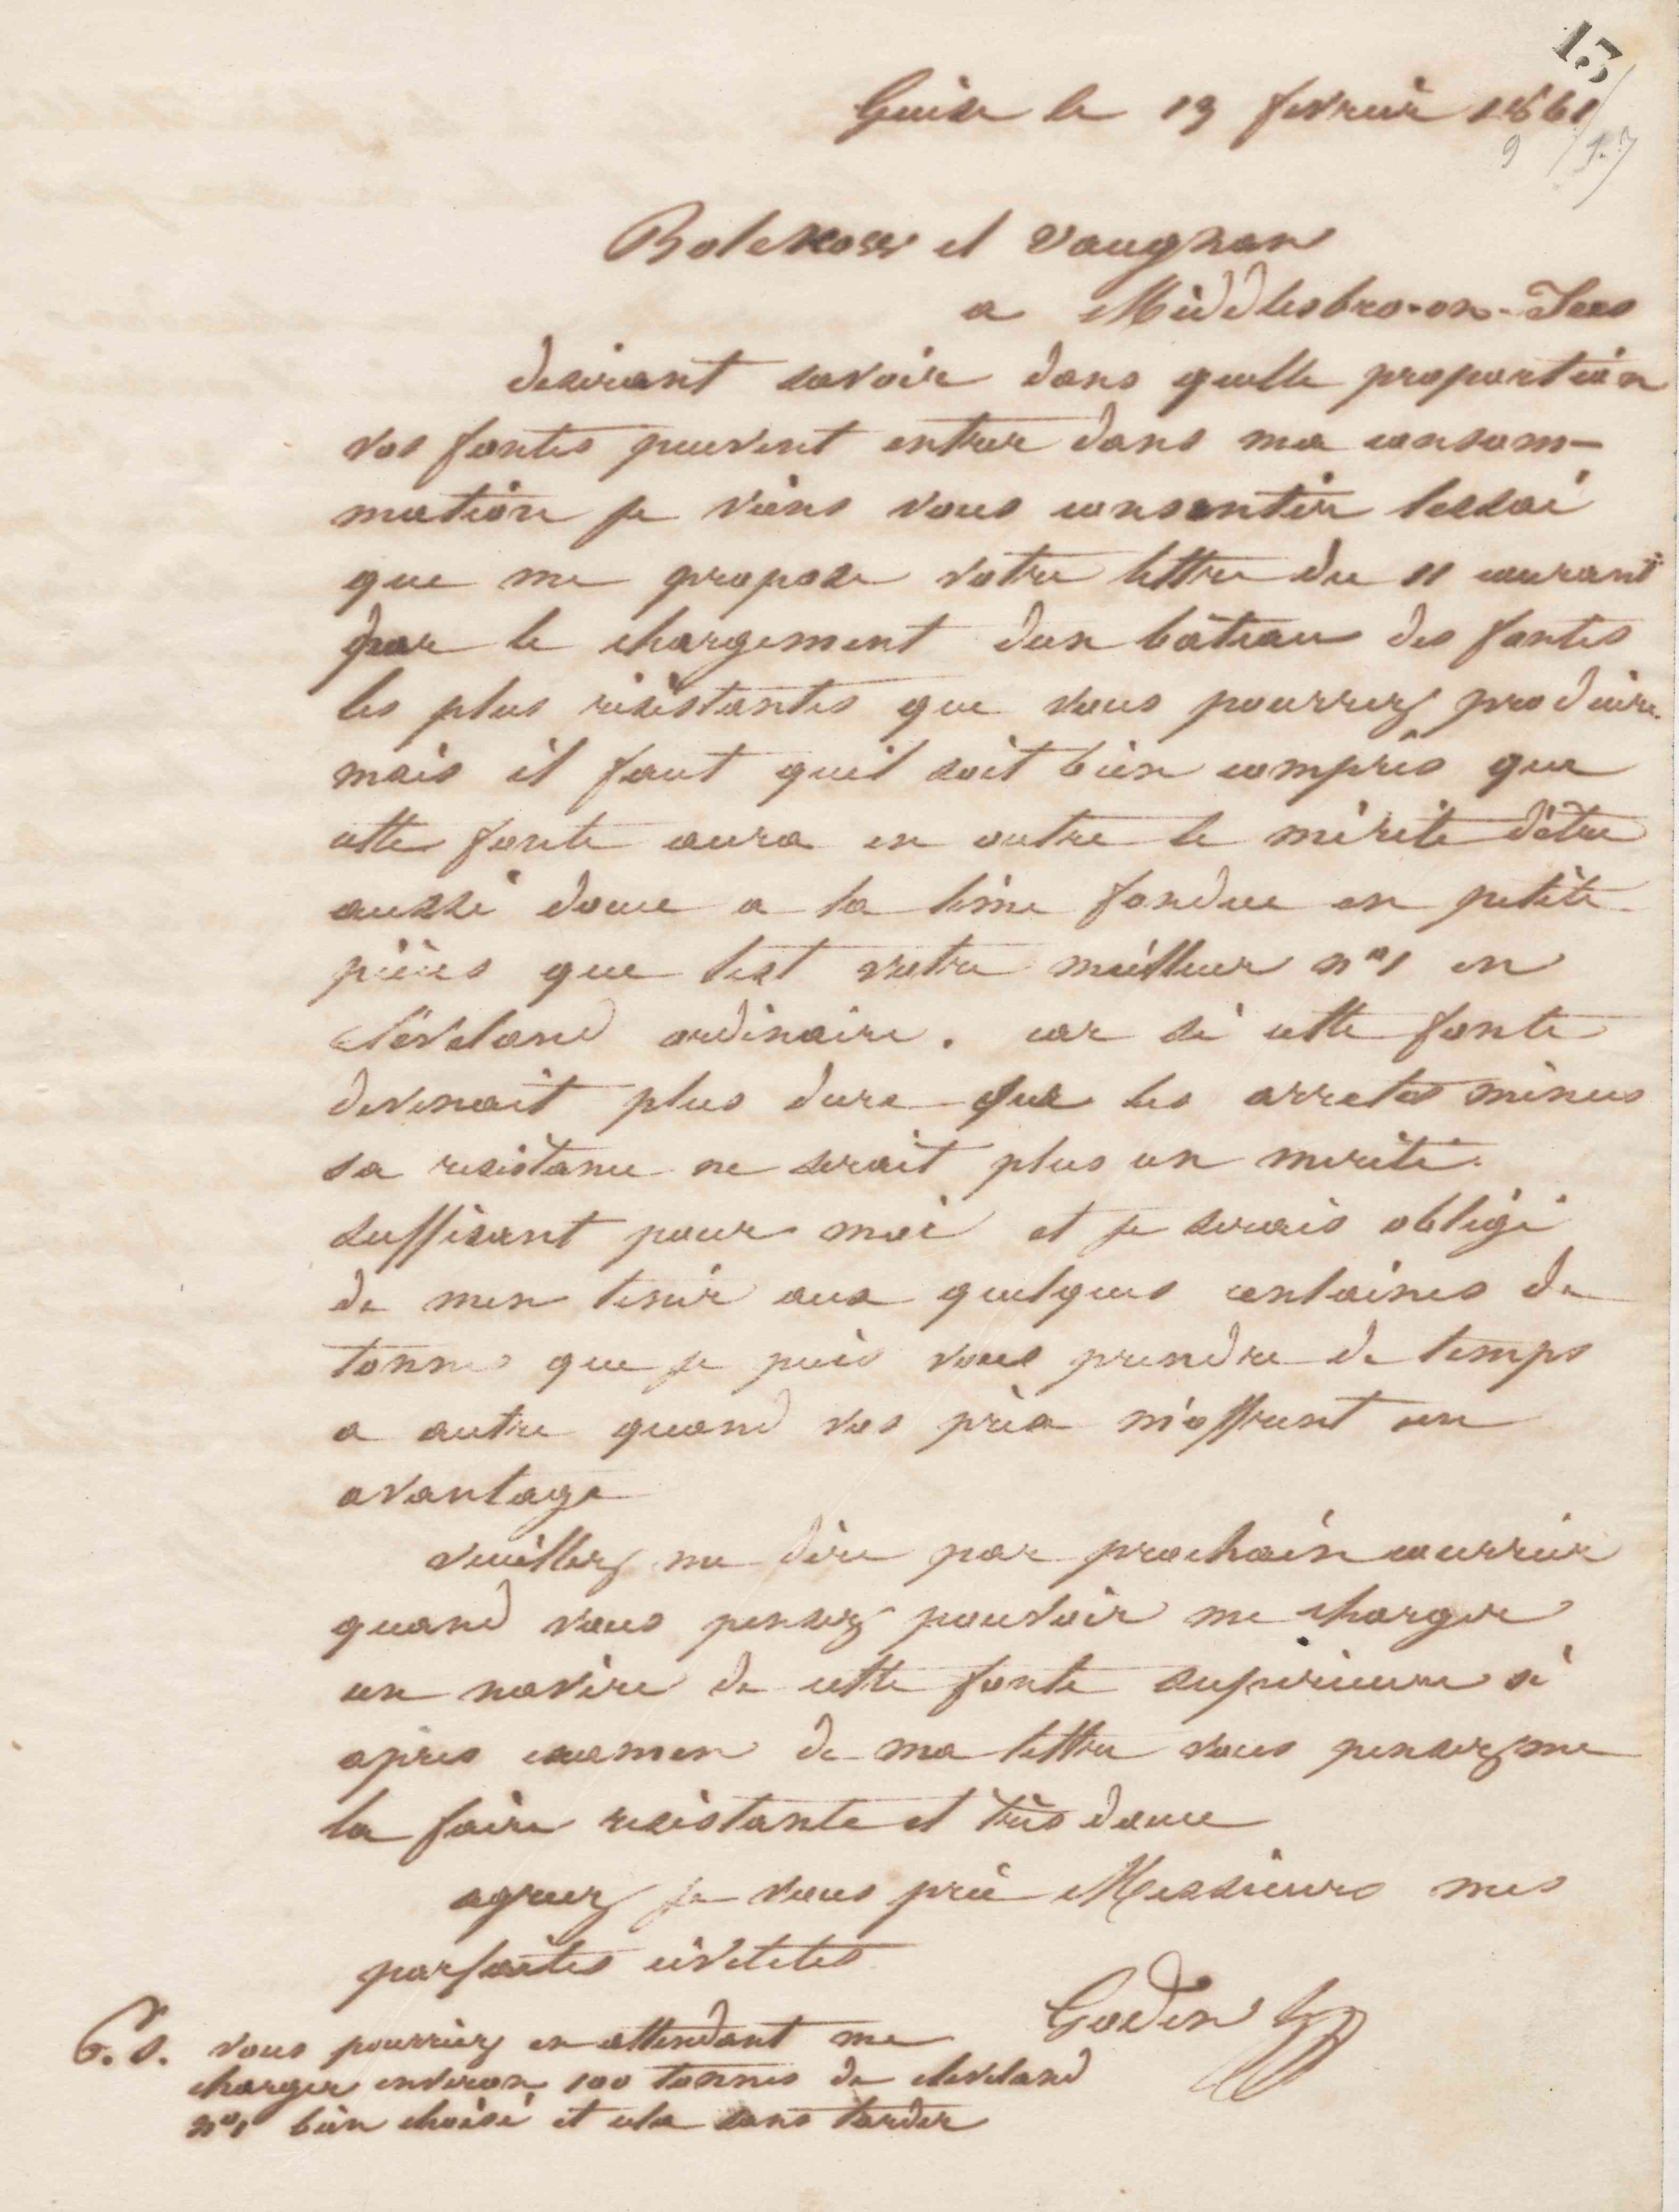 13
Guise le 19 fevrier 1861
Bolckow et Vaughan
a Middlesbro-on-Tees
desirant savoir dans quelle proportion
vos fontes peuvent entrer dans ma consom-
mation je viens vous consentir lessai
que me propose votre lettre du 11 courant
par le chargement dun bâteau des fontes
les plus résistantes que vous pourrez produire
mais il faut quil soit bien compris que
cette fonte aura en outre le mérite dêtre
aussi douce a la lime fondue en petite
pièces que lest votre meilleur n° 1 en
Cléveland ordinaire. car si cette fonte
devenait plus dure que les arretes minces
sa resistance ne serait plus un merite
suffisant pour moi et je serais obligé
de men tenir aux quelques centaines de
tonnes que je puis vous prendre de temps
a autre quand vos prix m'offrent un
avantage
veuillez me dire par prochain courrier
quand vous pensez pouvoir me charger
un navire de cette fonte superieure si
apres examen de ma lettre vous pensez me
la faire resistante et très douce
agreez je vous prie Messieurs mes
parfaites civilites
Godin
P.S. vous pourriez en attendant me
charger environ 100 tonnes de cleveland
n° 1 bien choisi et cela sans tarder